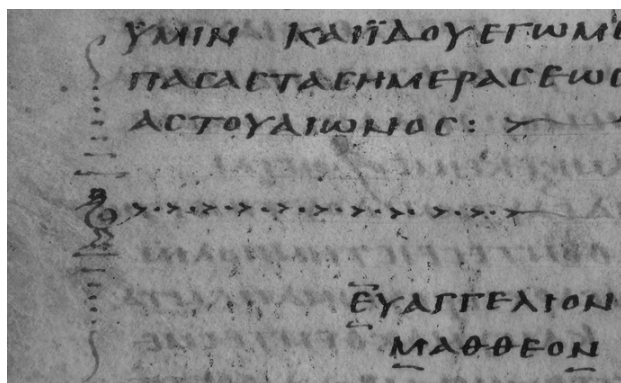 ΫΜΙΝ ΚΑΙΪΔΟΥΕΓΩΜΕ
ΠΑCΑCΤΑCΗΜΕΡΑCΕΩC
ΑCΤΟΥΑΙΩΝΟC: >
> · > · > · > · > · > · > · > · > · >
ΕΥΑΓΓΕΛΙΟΝ
ΜΑΘΘΕΟΝ